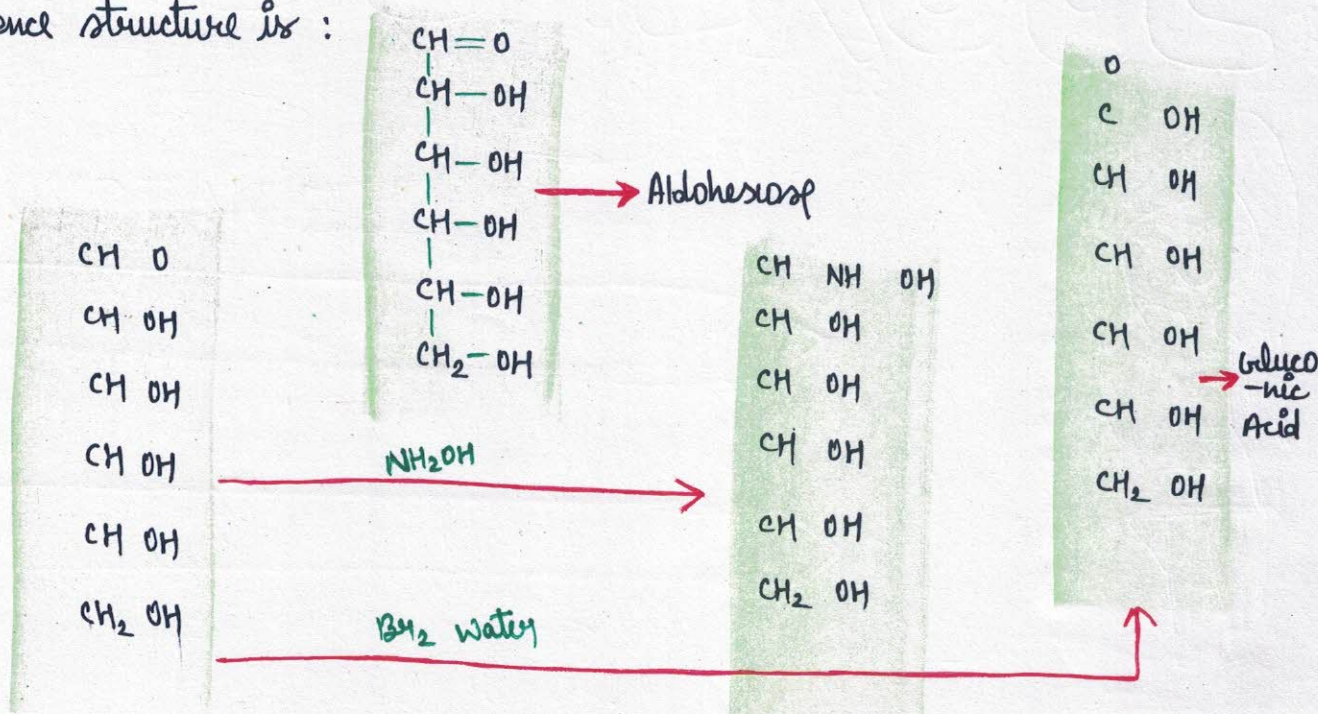 ence structure is :
CH=O
CH-OH
CH-OH
CH-OH
CH-OH
CH2-OH
Aldohexose
CH O
CH OH
CH OH
CH OH
CH OH
CH2 OH
NH2OH
Br2 Water
CH NH OH
CH OH
CH OH
CH OH
CH OH
CH2 OH
O
C OH
CH OH
CH OH
CH OH
CH OH
CH2 OH
Gluco
-nic
Acid